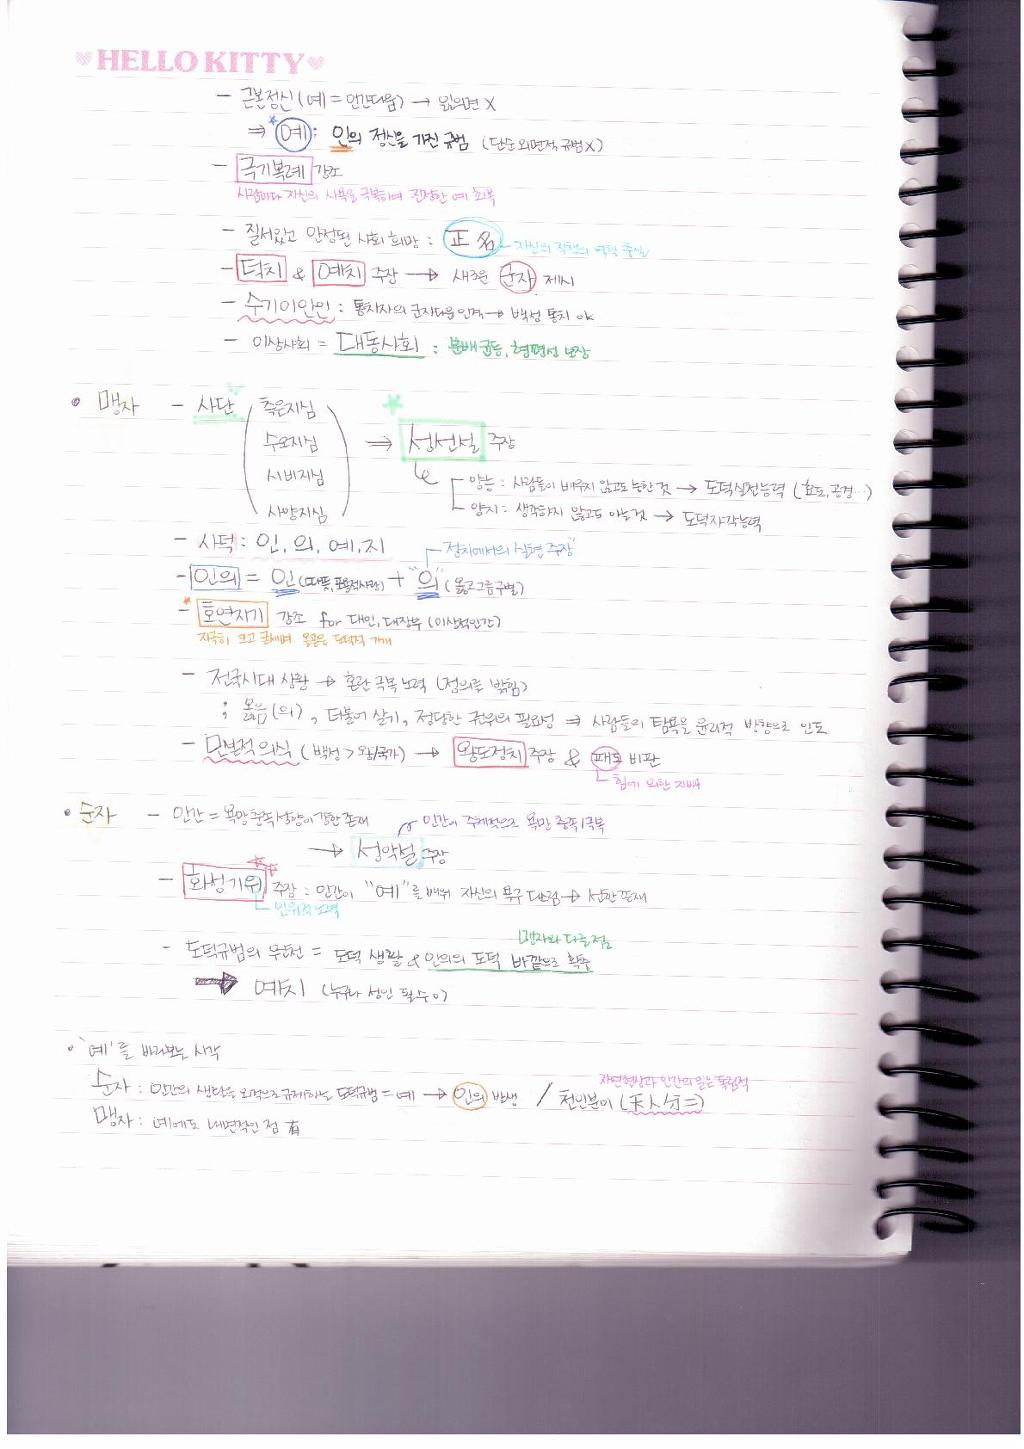 HELLO KITTY
- 근본정신 (예 = 인간다움) → 잃으면 X
⇒ 예 : 인의 정신을 가진 규범 (단순 외면적 규범X)
- 극기복례 강조
사람마다 자신의 사욕을 극복하여 진정한 예 회복
- 질서있고 안정된 사회 희망 : 正名 자신의 직책의 역할 충실
- 덕치 & 예치 주장 → 새로운 군자 제시
- 수기이안인 : 통치자의 군자다운 인격 → 백성 통치 ok
- 이상사회 = 대동사회 : 분배균등, 형평성 보장
• 맹자 - 사단 ( 측은지심
수오지심
시비지심
사양지심 ) ⇒ 성선설 주장
양능 : 사람들이 배우지 않고도 능한 것 → 도덕실천능력 (효도, 공경...)
양지 : 생각하지 않고도 아는 것 → 도덕자각능력
- 사덕 : 인, 의, 예, 지
정치에서의 실현 주장
- 인의 = 인 (따뜻, 포괄적사랑) + "의" (옳고그름구별)
- 호연지기 강조 for 대인, 대장부 (이상적인간)
지극히 크고 굳세며 올곧은 도덕적 기개
- 전국시대 상황 → 혼란 극복 노력 (정의를 밝힘)
; 옳음 (의), 더불어 살기, 정당한 권위의 필요성 ⇒ 사람들이 탐욕을 윤리적 방향으로 인도
- 민본적 의식 (백성 > 왕/국가) → 왕도정치 주장 & 패도 비판
힘에 의한 지배
• 순자 - 인간 = 욕망충족성향이 강한 존재
인간이 주체적으로 욕망 충족/극복
→ 성악설 주장
- 화성기위 주장 : 인간이 "예"를 배워 자신의 욕구 다스림 → 선한 존재
인위적 노력
맹자와 다른 점
- 도덕규범의 우선 = 도덕 생활 & 인의의 도덕 바깥으로 확충
→ 예치 (누구나 성인 될 수 o)
• '예'를 바라보는 시각
자연현상과 인간의 일은 독립적
순자 : 인간의 생활을 외적으로 규제하는 도덕규범 = 예 → 인의 발생 / 천인분이 (天人分二)
맹자 : 예에도 내면적인 점 有